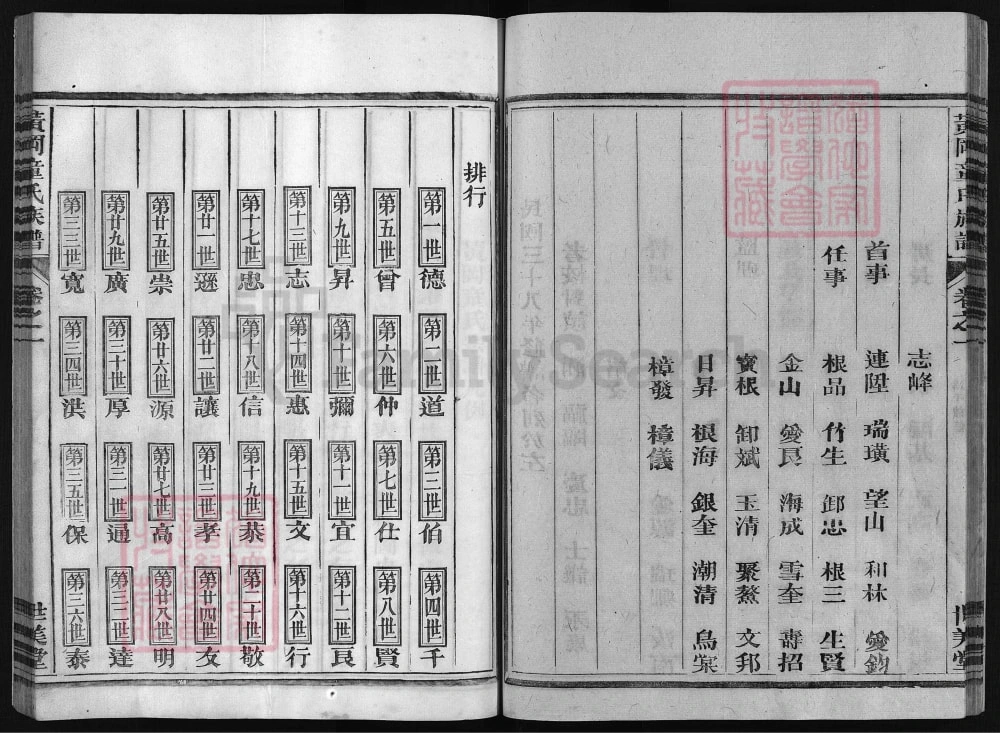 黃岡童氏族譜
卷之一
世美堂
志峰
首事 連陞 瑞璜 望山 和林 愛鈞
任事 根品 竹生 卸忠 根三 生賢
金山 愛良 海成 雪奎 壽招
寶根 卸斌 玉清 聚鰲 文郅
日昇 根海 銀奎 潮清 烏棠
樟發 樟儀
排行
第一世 德 第二世 道 第三世 伯 第四世 千
第五世 曾 第六世 仲 第七世 仕 第八世 賢
第九世 昇 第十世 彌 第十一世 宜 第十二世 良
第十三世 志 第十四世 惠 第十五世 文 第十六世 行
第十七世 忠 第十八世 信 第十九世 恭 第二十世 敬
第廿一世 遜 第廿二世 讓 第廿三世 孝 第廿四世 友
第廿五世 崇 第廿六世 源 第廿七世 高 第廿八世 明
第廿九世 廣 第三十世 厚 第三一世 通 第三二世 達
第三三世 寬 第三四世 洪 第三五世 保 第三六世 泰
黃岡童氏族譜
卷之一
世美堂
FamilySearch